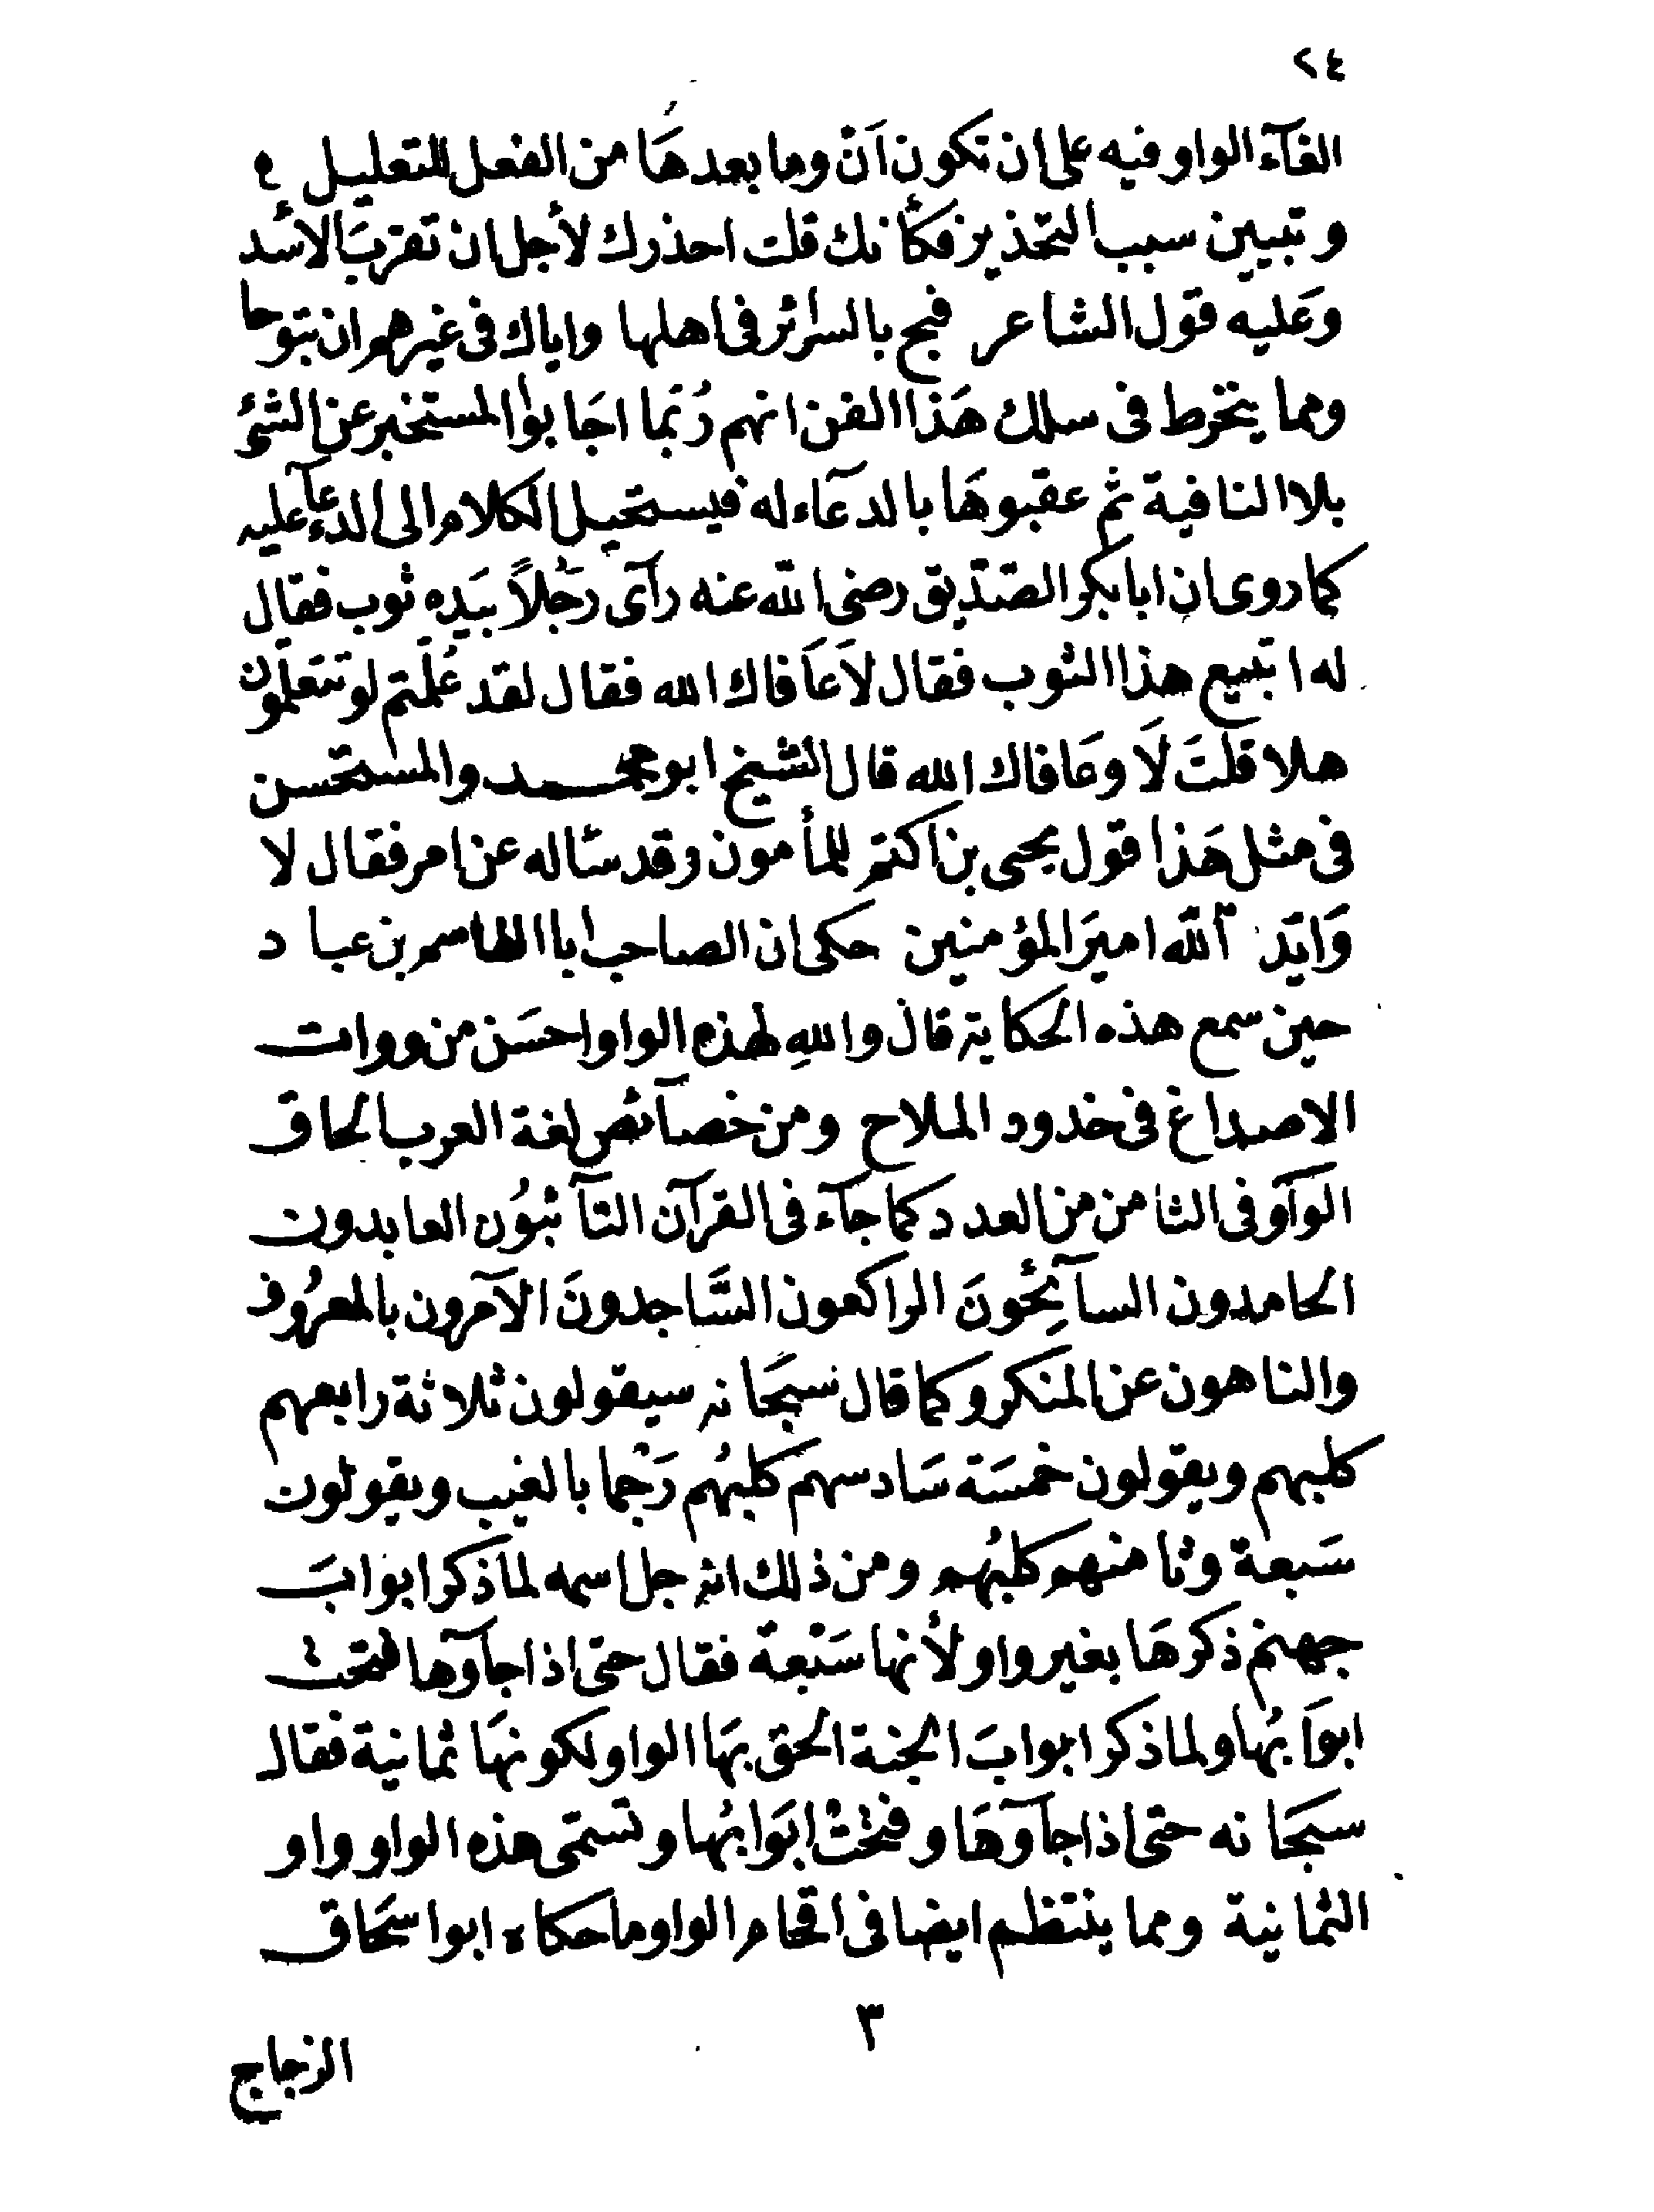 ٢٤
الغآء الواو فيه على ان تكون اَنْ وما بعدهَا من الفعل للتعليل
وتبيين سبب التحذير فكأنك قلت احذرك لأجل ان تقربَ الأسد
وعَليه قول الشاعر فبح بالسرائر فى اهلها واياك فى غيرهم ان تبوحا
ومما ينخرط فى سلك هَذا الفن انهم رُبَما اجَابوا المستخبر عن الشئ
بلا النافية ثم عقبوهَا بالدعآء له فيستحيل الكلام الى الدعآء عليه
كما روى ان ابا بكر الصّدّيق رضى الله عنه رآى رَجُلاً بيَده ثوب فقال
له اتبيع هذا الثوب فقال لاَ عَافاك الله فقال لقد عُلّمتم لو تتعَلمون
هلا قلتَ لَا وعَافاك الله قال الشيخ ابو محمد والمستحسن
فى مثل هَذا قول يحيى بن اكثم للمأمون وقد سَاله عن امر فقال لا
وَايّد الله اميرَ المؤمنين حكى ان الصاحب ابا القاسم بن عباد
حين سمع هذه الحكاية قال واللهِ لهذه الواو احسَن من ووات
الاصداغ فى خدود الملاح ومن خصآئص لغة العرب الحاق
الوآو فى الثامن من العدد كما جآء فى القرآن التآئبُون العابدون
الحامدون السآئِحُونَ الراكعون السَّاجدونَ الآمرون بالمعرُوف
والناهون عن المنكر وكما قال سبحَانه سيقولون ثلاثة رابعهم
كلبهم ويقولون خمسَة سَادسهم كلبُهم رَجْما بالغيب ويقولون
سَبعة وثامنهم كلبُهم ومن ذلك انه جل اسمه لما ذكر ابوابَ
جهنم ذكرهَا بغير واو لأنها سَبْعة فقال حتى اذا جآوٓها فتحت
ابوَابُها ولما ذكر ابوابَ الجنة الحق بهَا الواو لكونهَا ثمانية فقال
سبحَانه حتى اذا جآوٓهَا وفتحَتْ ابوَابُها وتسمّى هذه الواو واو
الثمانية ومما ينتظم ايضا فى اقحام الواو ما حكاه ابو اسحَاق
٣
الزجاج